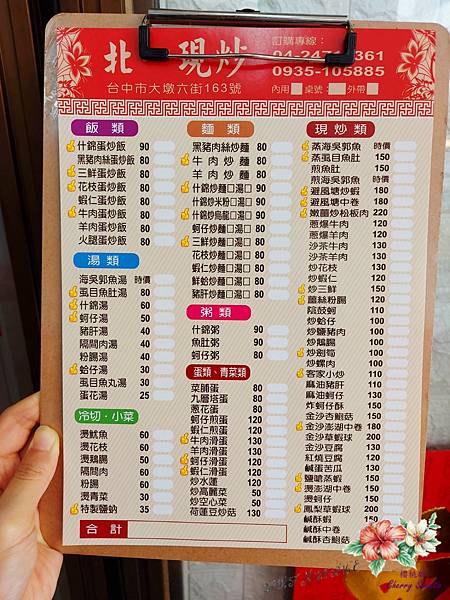 北
現炒
訂購專線：
0935-105885
台中市大墩六街163號
內用 桌號： 外帶
飯 類
什錦蛋炒飯 90
黑豬肉絲蛋炒飯 80
三鮮蛋炒飯 80
花枝蛋炒飯 80
蝦仁蛋炒飯 80
牛肉蛋炒飯 80
羊肉蛋炒飯 80
火腿蛋炒飯 80
湯 類
海吳郭魚湯 時價
虱目魚肚湯 80
什錦湯 60
蚵仔湯 50
豬肝湯 40
隔間肉湯 40
粉腸湯 40
蛤仔湯 30
虱目魚丸湯 30
蛋花湯 25
冷切·小菜
燙魷魚 60
燙花枝 60
燙鵝腸 50
隔間肉 60
粉腸 60
燙青菜 30
特製鹽蚋 35
合計
麵 類
黑豬肉絲炒麵 80
牛肉炒麵 80
羊肉炒麵 80
什錦炒麵□湯□ 90
什錦炒米粉□湯□ 90
什錦炒烏龍□湯□ 90
蚵仔炒麵□湯□ 80
三鮮炒麵□湯□ 80
花枝炒麵□湯□ 80
蝦仁炒麵□湯□ 80
鮮蛤炒麵□湯□ 80
豬肝炒麵□湯□ 80
粥 類
什錦粥 90
魚肚粥 90
蚵仔粥 90
蛋類、青菜類
菜脯蛋 80
九層塔蛋 80
蔥花蛋 80
蚵仔煎蛋 120
蝦仁煎蛋 120
牛肉滑蛋 130
羊肉滑蛋 130
蚵仔滑蛋 130
蝦仁滑蛋 130
炒水蓮
炒高麗菜 50
炒空心菜 50
荷蓮豆炒菇 130
現炒類
蒸海吳郭魚 時價
蒸虱目魚肚 150
煎魚肚 150
煎海吳郭魚 時價
避風塘炒蝦 180
避風塘中卷 180
嫩薑炒松板肉 220
蔥爆牛肉
蔥爆羊肉
沙茶牛肉 130
沙茶羊肉 130
炒花枝 130
炒蝦仁 120
炒三鮮 150
薑絲粉腸 120
蔭鼓蚵 110
炒蛤仔 110
炒鹽豬肉 110
炒鵝腸 110
炒劍筍 110
炒螺肉 110
客家小炒 110
麻油豬肝 110
麻油蚵仔
炸蚵仔酥 110
金沙杏鮑菇 150
金沙澎湖中卷 180
金沙草蝦球 200
金沙豆腐 130
紅燒豆腐 120
鹹蛋苦瓜 130
鹽嗆蒸蝦 150
燙澎湖中卷
燙蚵仔 150
鳳梨草蝦球 200
鹹酥蝦 150
鹹酥中卷
鹹酥杏鮑菇
櫻桃
Cherry